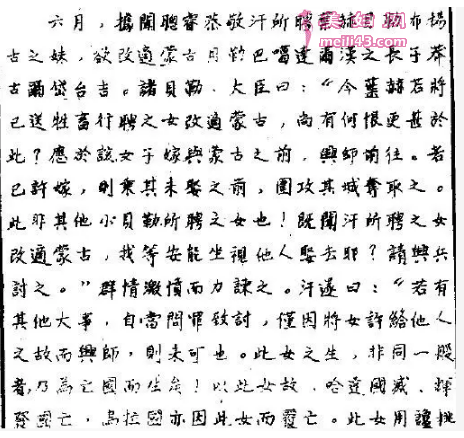 六月，據聞聰睿恭敬汗所聘葉赫貝勒布揚
古之妹，欲改適蒙古貝勒巴噶達爾漢之長子莽
古爾岱台吉。諸貝勒、大臣曰：“今葉赫若將
已送牲畜行聘之女改適蒙古，尚有何恨更甚於
此？應於該女子嫁與蒙古之前，興師前往。若
已許嫁，則乘其未娶之前，圍攻其城奪取之。
此非其他小貝勒所聘之女也！既聞汗所聘之女
改適蒙古，我等安能坐視他人娶去耶？請興兵
討之。”群情激憤而力諫之。汗遂曰：“若有
其他大事，自當問罪致討，僅因將女許給他人
之故而興師，則未可也。此女之生，非同一般
者，乃為亡國而生矣！以此女故，哈達國滅，輝
發國亡，烏拉國亦因此女而覆亡。此女用讒挑
meili43.com